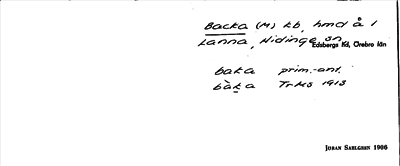 Backa (M) kb, hmd å 1
Lanna, Hidinge sn
Edsbergs hd, Örebro län
baka prim.-ant.
bàka TrMs 1913
JOHAN SAHLGREN 1906